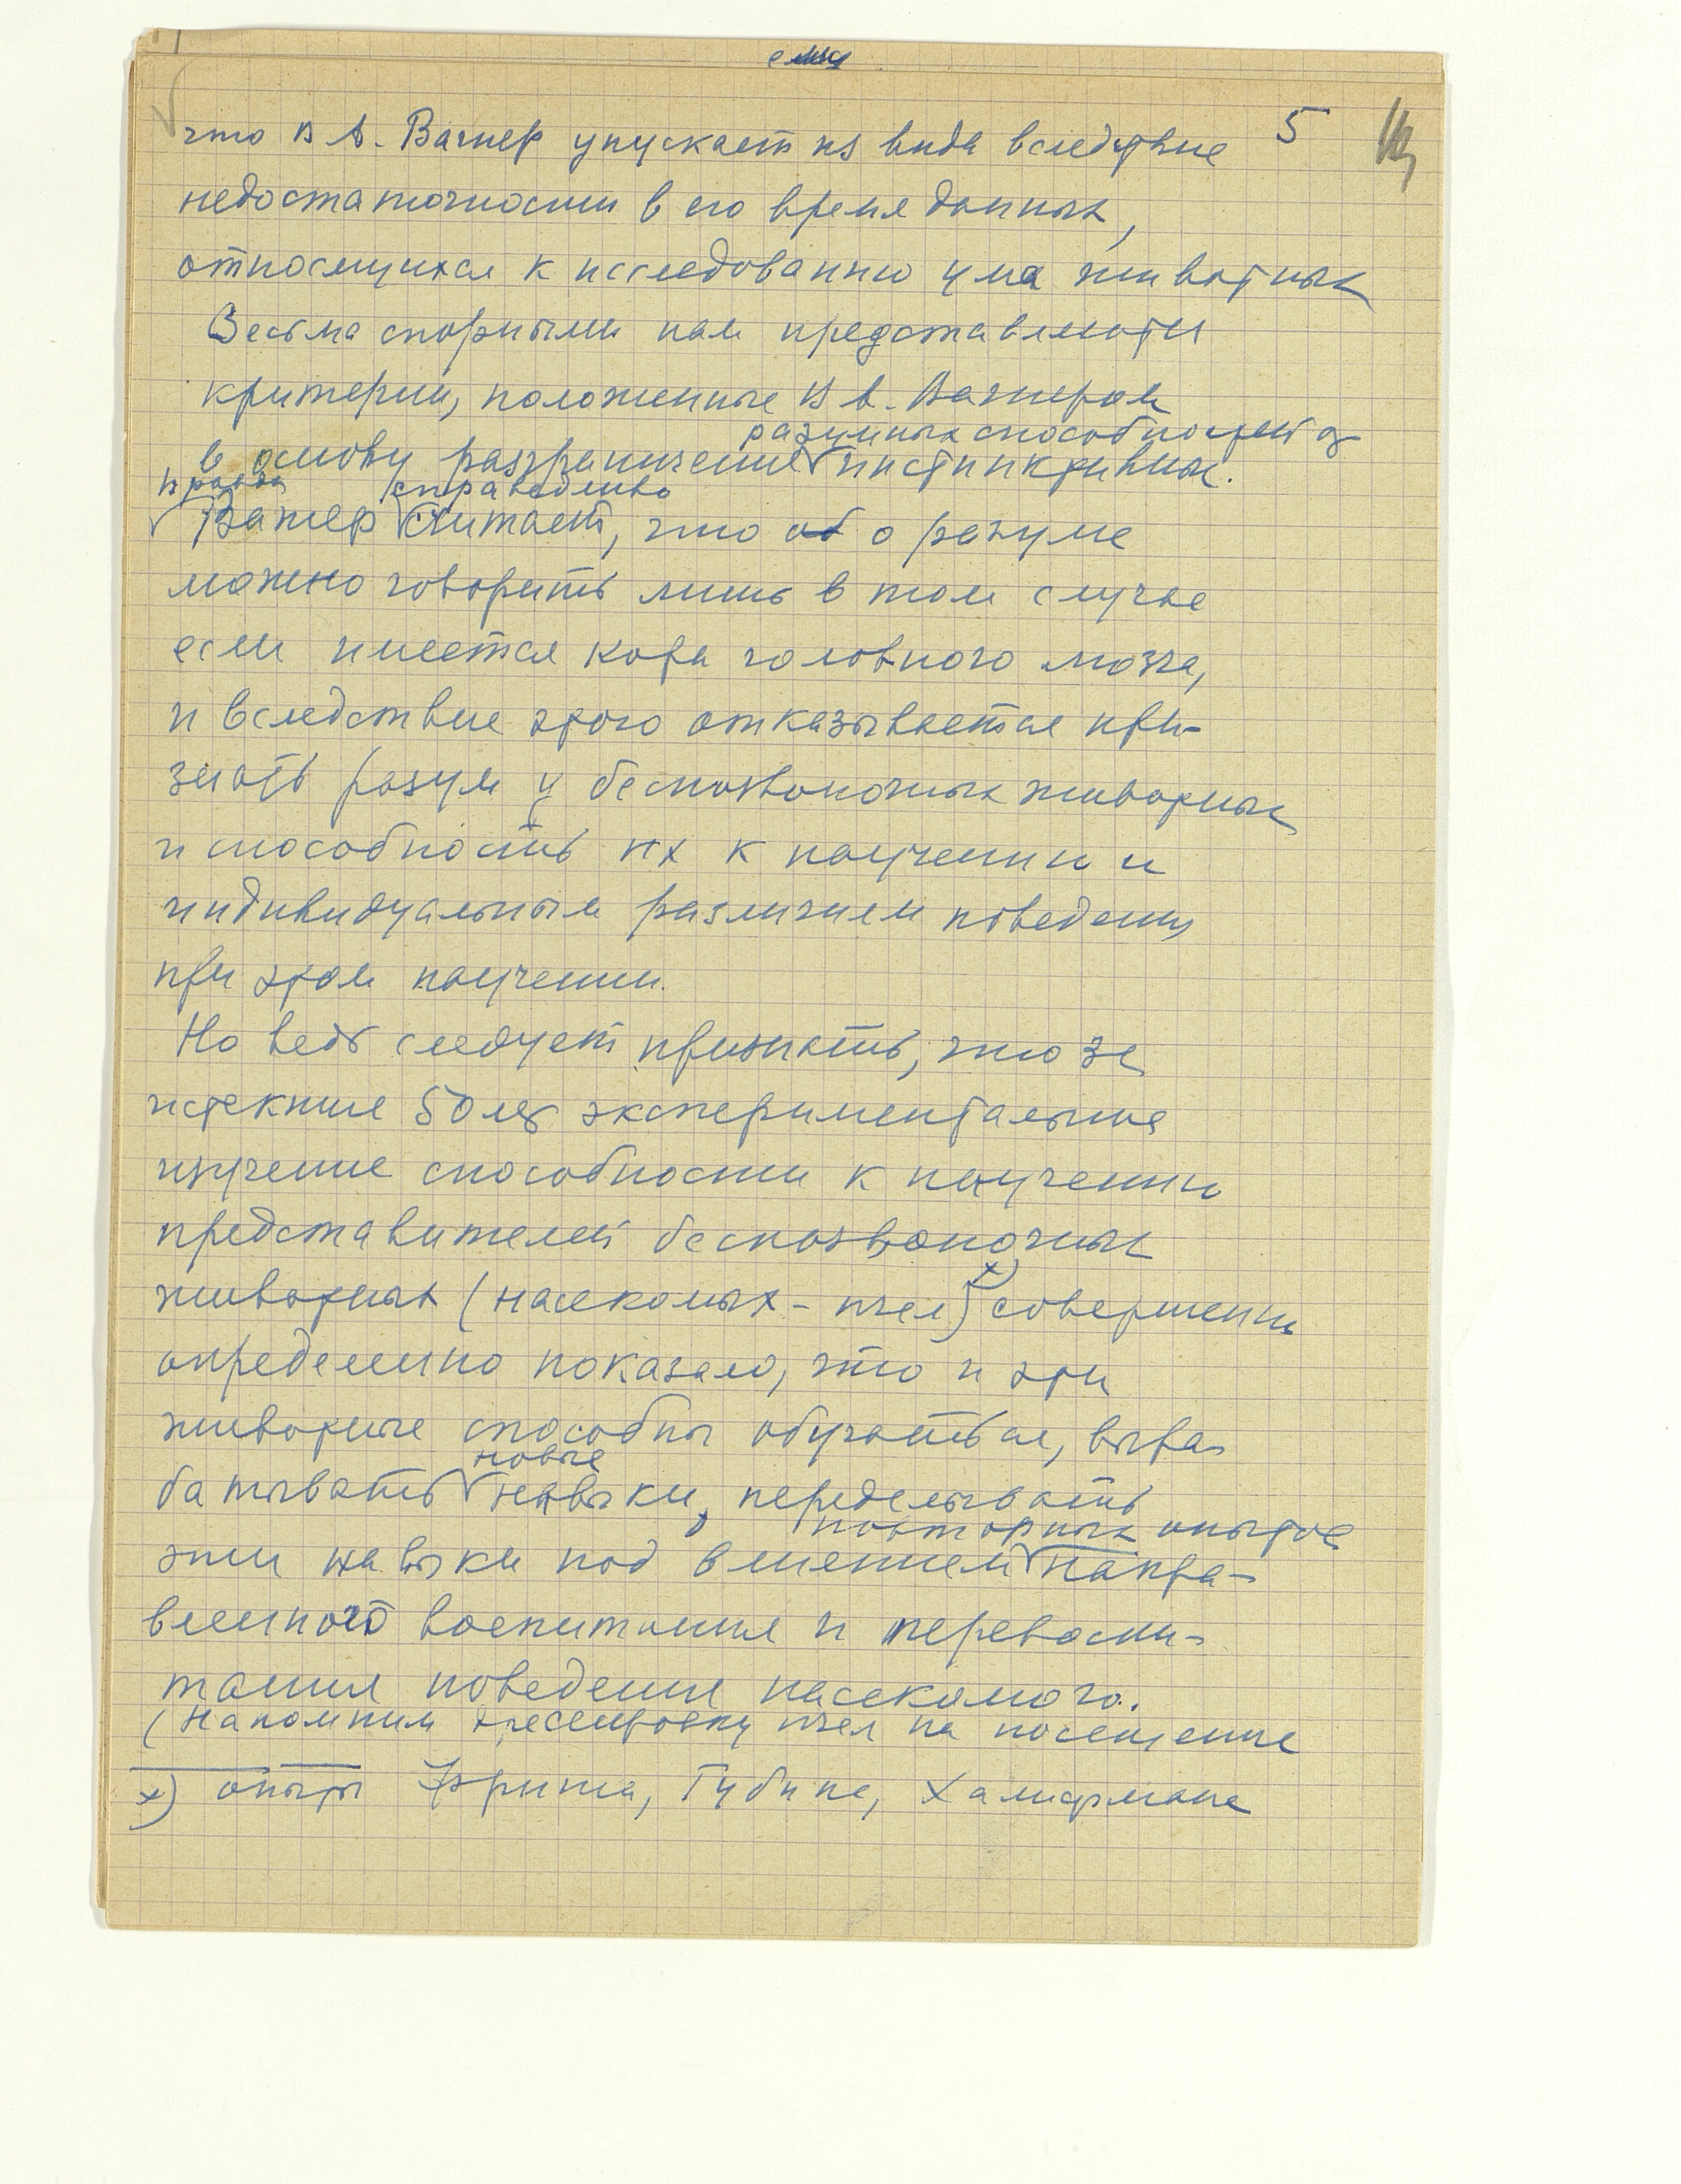 5
что В. А. Вагнер упускает из вида вследствие
недостаточности в его время данных,
относящихся к исследованию ума животных
Весьма спорными нам представляются
критерии, положенные В. А. Вагнером
разумных способностей от
в основу разграничения инстинктивных.
вправды справедливо
Вагнер считает, что об о разуме
можно говорить лишь в том случае
если имеется кора головного мозга,
и вследствие этого отказывается при-
знать разум у беспозвоночных животных
и способность их к научению и
индивидуальным различием поведения
при этом научении.
Но ведь следует признать, что за
истекшие 50 лет экспериментальное
изучение способности к научению
представителей беспозвоночных
животных (насекомых - пчел) х) совершенно
определенно показало, что и эти
животные способны обучаться, выра-
новые
батывать навыки, переделывать
повторных опытов
эти навыки под влиянием напра-
вленного воспитания и перевоспи-
тания поведения насекомого.
(Напомним дрессировку пчел на посещение
х) опыты Фриша, Губина, Халифмана